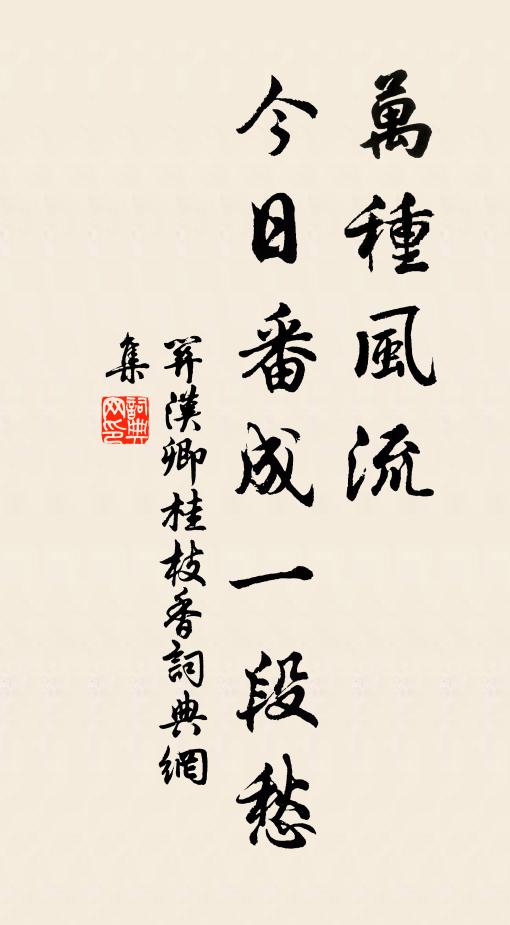 萬種風流
今日番成一段愁
關漢卿桂枝香詞典網
集
詞典網印